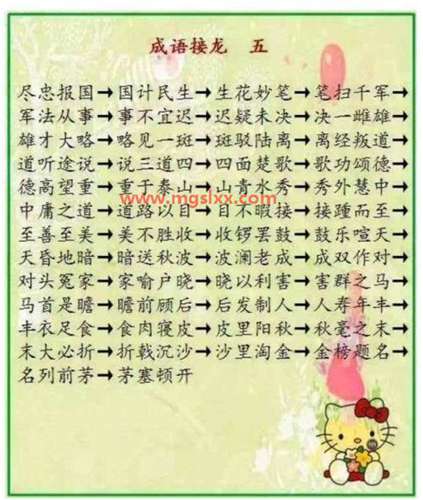 成语接龙 五
尽忠报国→国计民生→生花妙笔→笔扫千军→
军法从事→事不宜迟→迟疑未决→决一雌雄→
雄才大略→略见一斑→斑驳陆离→离经叛道→
道听途说→说三道四→四面楚歌→歌功颂德→
德高望重→重于泰山→山青水秀→秀外慧中→
www.mgslxx.com
中庸之道→道路以目→目不暇接→接踵而至→
至善至美→美不胜收→收锣罢鼓→鼓乐喧天→
天昏地暗→暗送秋波→波澜老成→成双作对→
对头冤家→家喻户晓→晓以利害→害群之马→
马首是瞻→瞻前顾后→后发制人→人寿年丰→
丰衣足食→食肉寝皮→皮里阳秋→秋毫之末→
末大必折→折戟沉沙→沙里淘金→金榜题名→
名列前茅→茅塞顿开